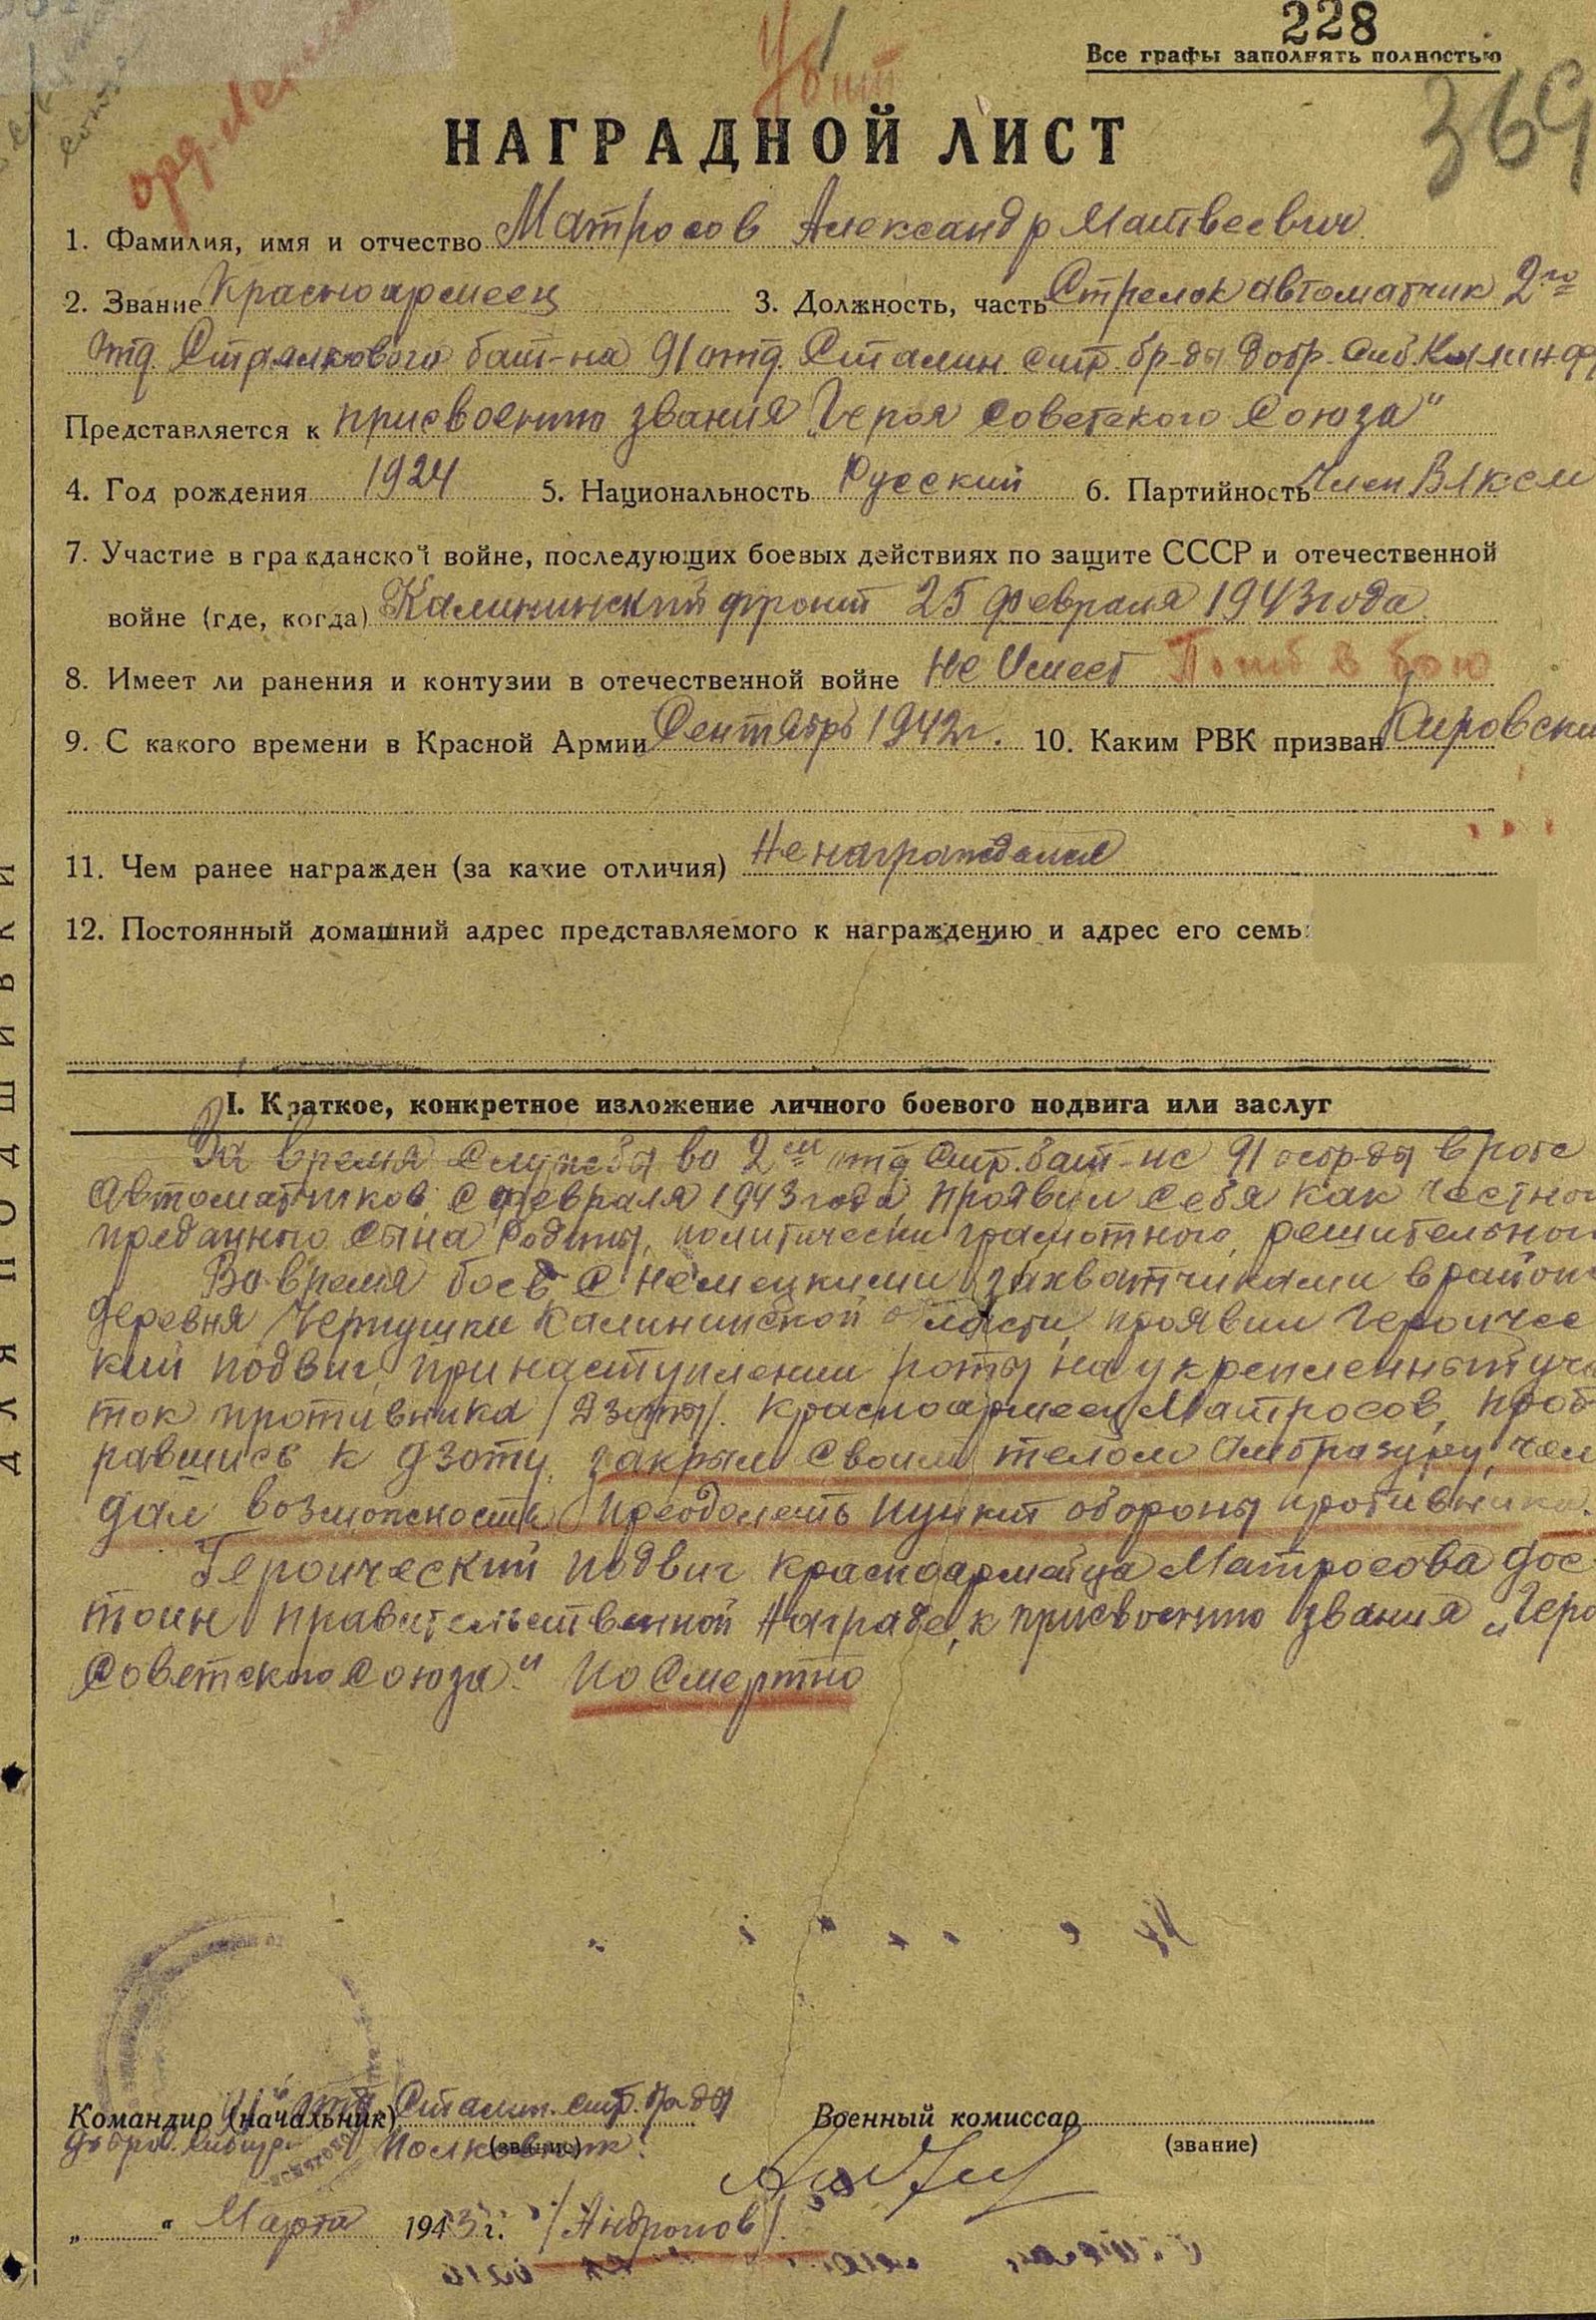 228
Все графы заполнять полностью
Убит
369
орд.
НАГРАДНОЙ ЛИСТ
1. Фамилия, имя и отчество Матросов Александр Матвеевич
2. Звание Красноармеец 3. Должность, часть Стрелок автоматчик 2го
отд. Стрелкового бат-на 91 отд. Сталин. стр. бр-ды добр. сиб. Калин. ф
Представляется к присвоению звания „Героя Советского Союза"
4. Год рождения 1924 5. Национальность Русский 6. Партийность Член ВЛКСМ
7. Участие в гражданской войне, последующих боевых действиях по защите СССР и отечественной
войне (где, когда) Калининский фронт 25 февраля 1943 года
8. Имеет ли ранения и контузии в отечественной войне Не Имеет Погиб в бою
9. С какого времени в Красной Армии Сентябрь 1942 г. 10. Каким РВК призван Кировски
11. Чем ранее награжден (за какие отличия) Не награждался
12. Постоянный домашний адрес представляемого к награждению и адрес его семь
ДЛЯ ПОДШИВКИ
I. Краткое, конкретное изложение личного боевого подвига или заслуг
За время Службы во 2ом отд Стр. бат-не 91 осбр-ды в роте
Автоматчиков, с февраля 1943 года, проявил Себя как честног
преданного Сына Родины, политически грамотного, решительног
Во время боев с немецкими захватчиками в район
деревня Чернушки Калининской области, проявил Геройчес
кий подвиг, при наступлении роты на укрепленный уча
ток противника /Дзоты/. Красноармеец Матросов, проб
равшись к дзоту, закрыл Своим телом Амбразуру, чем
дал возможность преодолеть пункт обороны противника.
Героический подвиг красноармейца Матросова дос
тоин правительственной Награде, к присвоению звания „Геро
Советского Союза". По Смертно
Командир (начальник) 91 отд Сталин. стр. бр-ды
добров. Сибир. Полковник
(звание)
Военный комиссар
(звание)
„ “ Марта 1943 г. /Андронов/.